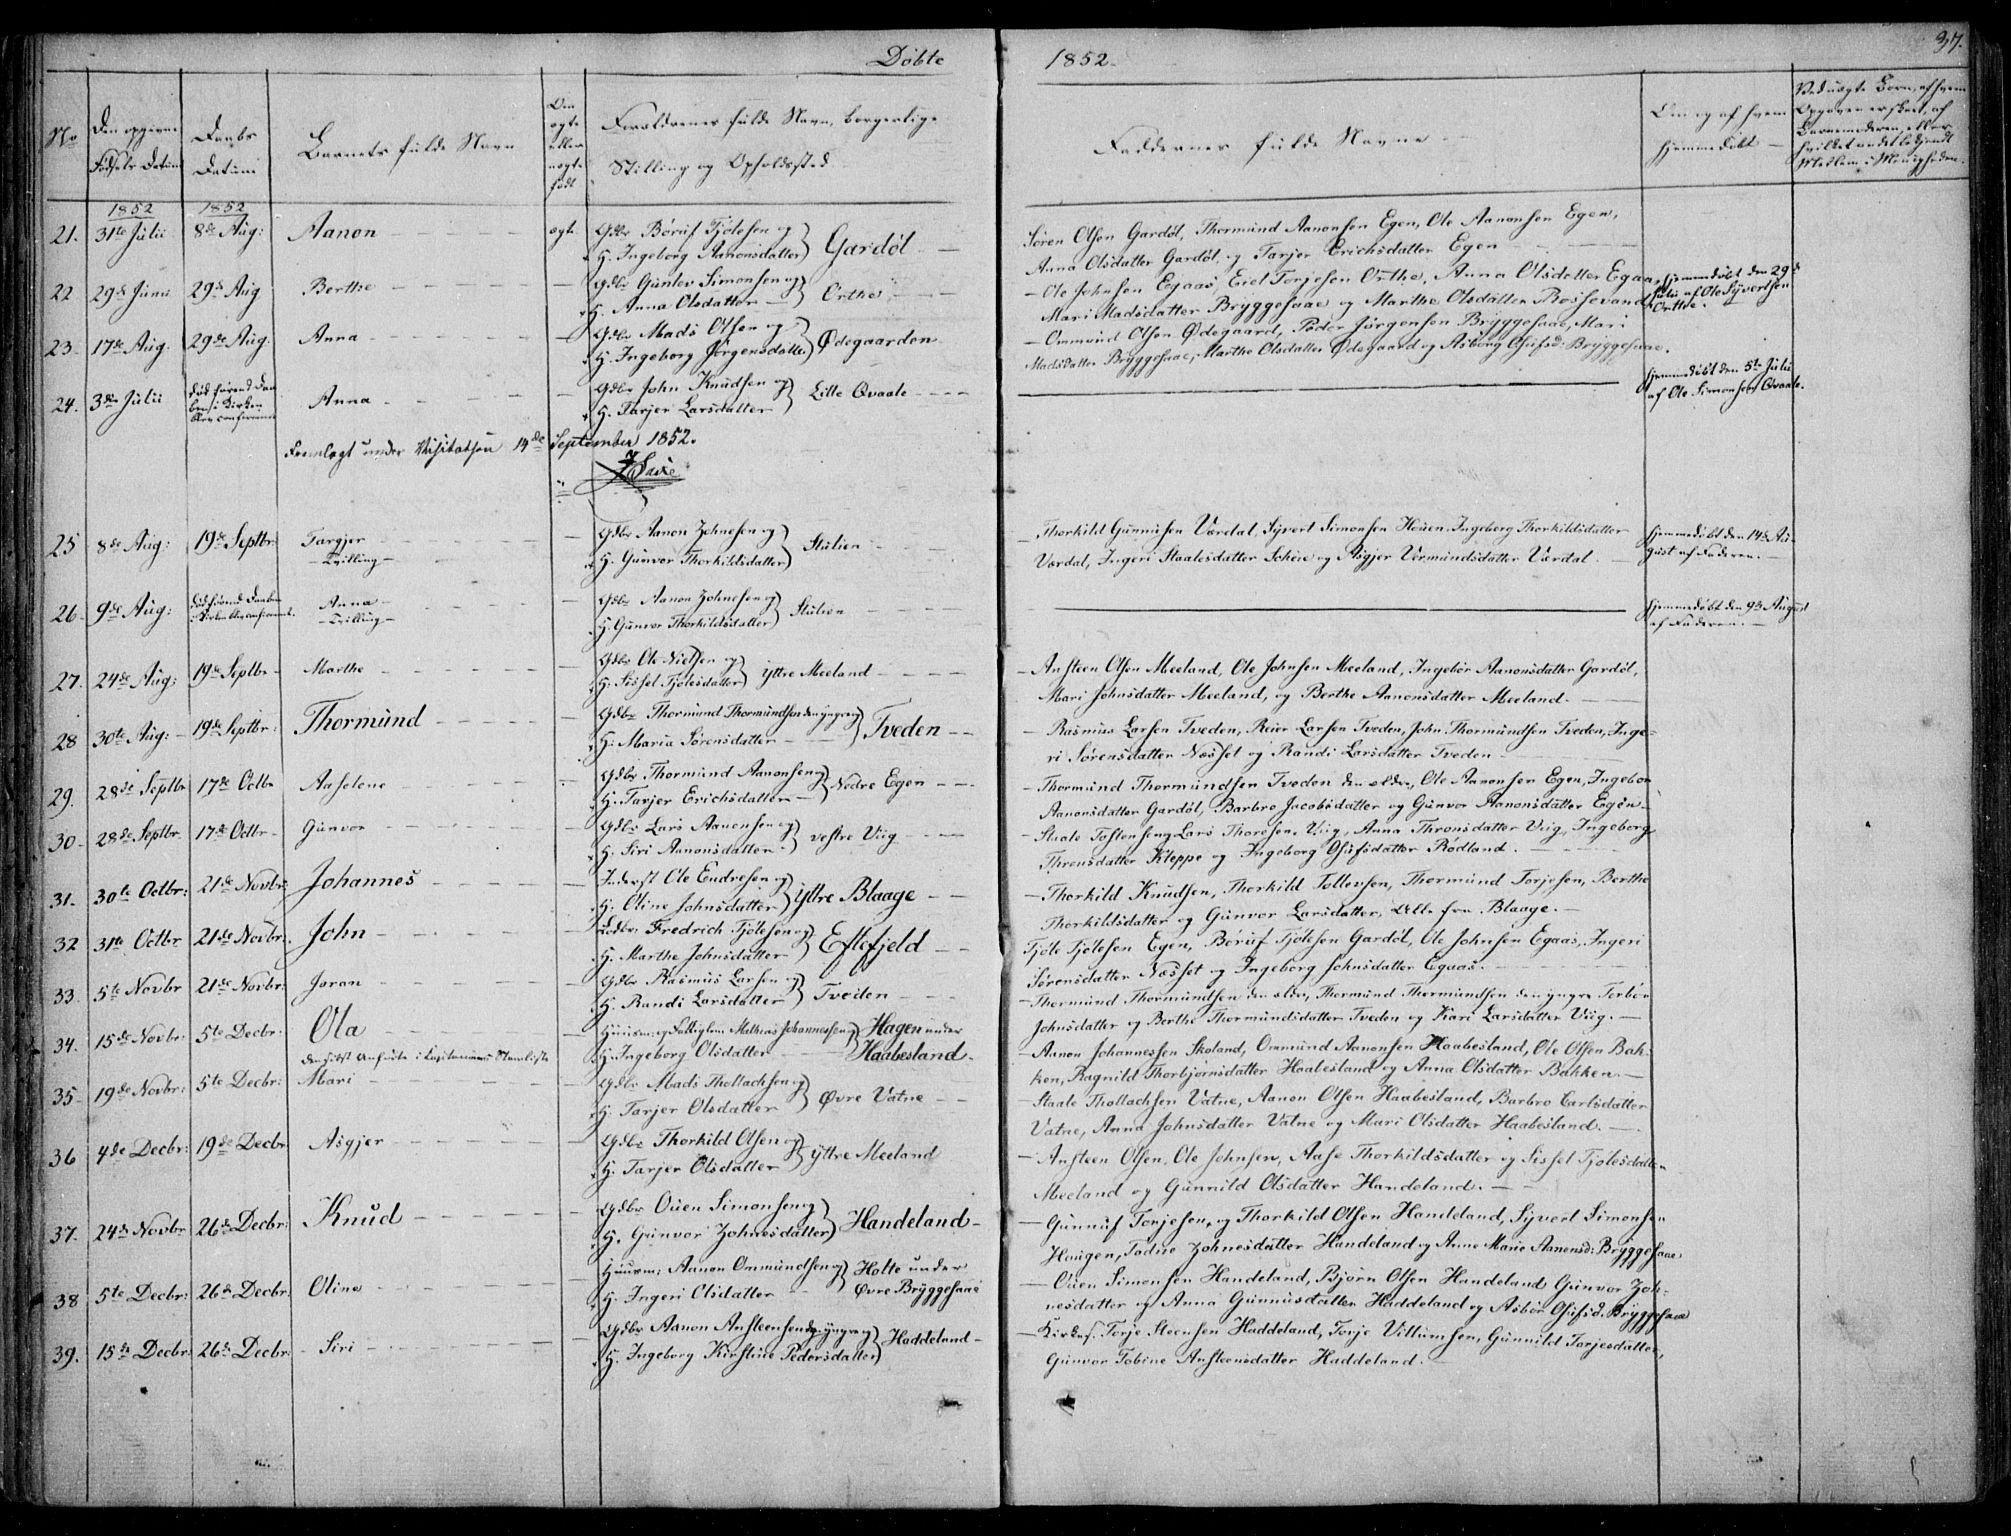 Døbte 1852. 37.
No Den opgivne Fødsels Datum Daabs Datum Barnets fulde Navn Om ægte eller uægte født Forældrenes fulde Navn, borgerlige Stilling og Opholdssted Faddernes fulde Navne Om og af hvem hjemmedøbt
1852 1852
21. 31te Julii 8de Aug: Aanon ægte Gdbr Børuf Tjølesen og
H. Ingeborg Aanonsdatter Gardøl
Søren Olsen Gardøl, Thormund Aanonsen Egen, Ole Aanonsen Egen,
Anna Olsdatter Gardøl, og Tarjer Erichsdatter Egen
22 29de Junii 29de Aug Berthe Gdbr Gunlev Simonsen og
H. Anna Olsdatter Orthe
Ole Johnsen Egaas, Eiel Torjesen Orthe, Anna Olsdatter Egaas,
Mari Madsdatter Bryggesaae og Marthe Olsdatter Rossevand
hjemmedøbt den 29de
Julii af Ole Syvertsen
Orthe.
23. 17de Aug. 29de Aug. Anna Gdbr Mads Olsen og
H. Ingeborg Jørgensdatter Ødegaarden
Ommund Olsen Ødegaard, Peder Jørgensen Bryggesaae, Mari
Madsdatter Bryggesaae, Marthe Olsdatter Ødegaard og Asborg Gjufsd: Bryggesaae.
24. 3die Julii død førend Daaben i Kirken blev confirmeret Anna Gdbr John Knudsen og
H. Tarjer Larsdatter Lille Qvaale
hjemmedøbt den 5te Julii
af Ole Simonsen Qvaale.
Fremlagt under Visitatsen 14de September 1852.
25 8de Aug: 19de Septbr: Targjer Gdbr Aanon Zohnesen og
Tvilling H. Gunvor Thorkildsdatter Stulien
Thorkild Gunnusen Værdal, Syvert Simonsen Houen, Ingeborg Thorkildsdatter
Værdal, Ingeri Staalesdatter Scheie og Asgjer Vermundsdatter Værdal.
hjemmedøbt den 14de Au-
gust af Faderen.
26 9de Aug: Anna Gdbr Aanon Zohnesen og
Tvilling H. Gunvor Thorkildsdatter Stulien
hjemmedøbt den 9de August
af Faderen.
27. 24de Aug: 19de Septbr Marthe Gdbr Ole Nielsen og
H. Sissel Tjølesdatter yttre Meeland
Ansteen Olsen Meeland, Ole Johnsen Meeland, Ingebor Aanonsdatter Gardøl,
Mari Johnsdatter Meeland, og Berthe Aanonsdatter Meeland.
28 30te Aug: 19de Septbr: Thormund Gdbr Thormund Thormundsen den yngre og
H. Maria Sørensdatter Tveden
Rasmus Larsen Tveden, Reier Larsen Tveden, John Thormundsen Tveden, Inge-
ri Sørensdatter Næsset og Randi Larsdatter Tveden
29. 28de Septbr 17de Octbr Aaselene Gdbr Thormund Aanonsen og
H. Tarjer Erichsdatter Nedre Egen
Thormund Thormundsen Tveden den eldre, Ole Aanonsen Egen, Ingebor
Aanonsdatter Gardøl, Barbro Jacobsdatter og Gunvor Aanonsdatter Egen
30. 28de Septbr. 17de Octbr Gunvor Gdbr Lars Aanonsen og
H. Siri Aanonsdatter vestre Viig
Staale Tostensen og Lars Thoresen Viig, Anna Thronsdatter Viig, Ingeborg
Thronsdatter Kleppe og Ingeborg Gjufsdatter Rødland.
31. 30te Octbr: 21de Novbr: Johannes Inderst Ole Endresen og
H. Oline Johnsdatter yttre Blaage
Thorkild Knudsen, Thorkild Tollevsen, Thormund Torjesen, Berthe
Thorkildsdatter og Gunvor Larsdatter, Alle fra Blaage.
32 31te Octbr 21de Novbr: John Gdbr Fredrich Tjølesen og
H. Marthe Johnsdatter Eftefjeld
Tjøle Tjølesen Egen, Børuf Tjølesen Gardøl, Ole Johnsen Egaas, Ingeri
Sørensdatter Næsset og Ingeborg Johnsdatter Egaas.
33. 5te Novbr 21de Novbr: Joran Gdbr Rasmus Larsen og
H. Randi Larsdatter Tveden
Thormund Thormundsen den eldre, Thormund Thormundsen den yngre Torbor
Johnsdatter og Berthe Thormundsdatter Tveden og Kari Larsdatter Viig.
34. 15de Novbr: 5te Decbr: Ola Huusm: og Fattiglem Mathias Johannessen og Hagen under
H. Ingeborg Olsdatter Haabesland.
Aanon Johannessen Skoland, Ommund Aanonsen Haabesland, Ole Olsen Bak-
ken, Ragnild Thorbjornsdatter Haabesland og Anna Olsdatter Bakken.
35 19de Novbr: 5te Decbr: Mari Gdbr Mads Thollachsen og
H. Tarjer Olsdatter Øvre Vatne
Staale Thollachsen Vatne, Aanon Olsen Haabesland, Barbro Carlsdatter
Vatne, Anna Johnsdatter Vatne og Mari Olsdatter Haabesland.
36 4de Decbr: 19de Decbr Asgjer Gdbr Thorkild Olsen og
H. Tarjer Olsdatter yttre Meeland
Ansteen Olsen, Ole Johnsen, Aase Thorkildsdatter og Sissel Tjølesdatter
Meeland og Gunnild Olsdatter Handeland.
37. 24de Novbr 26de Decbr: Knud Gdbr Ouen Simonsen og
H. Gunvor Zohnesdatter Handeland
Gunnuf Torjesen, og Thorkild Olsen Handeland, Syvert Simonsen
Hougen, Todne Zohnesdatter Handeland og Anne Marie Aanensd: Bryggesaae
38 5te Decbr: 26de Decbr: Oline Huusm: Aanon Ommundsen og Holte under
H. Ingeri Olsdatter Øvre Bryggesaae
Ouen Simonsen Handeland, Bjørn Olsen Handeland, Gunvor Zoh-
nesdatter og Anna Gunnusdatter Haddeland og Asbor Gjufsd. Bryggesaae
39. 15de Decbr: 26de Decbr: Siri Gdbr Aanon Ansteensen d. yngre og
H. Ingeborg Kirstine Pedersdatter Haddeland
Kirkes. Torje Steensen Haddeland, Torje Villumsen, Gunnild Torjesdatter,
Gunvor Tobine Ansteensdatter Haddeland.